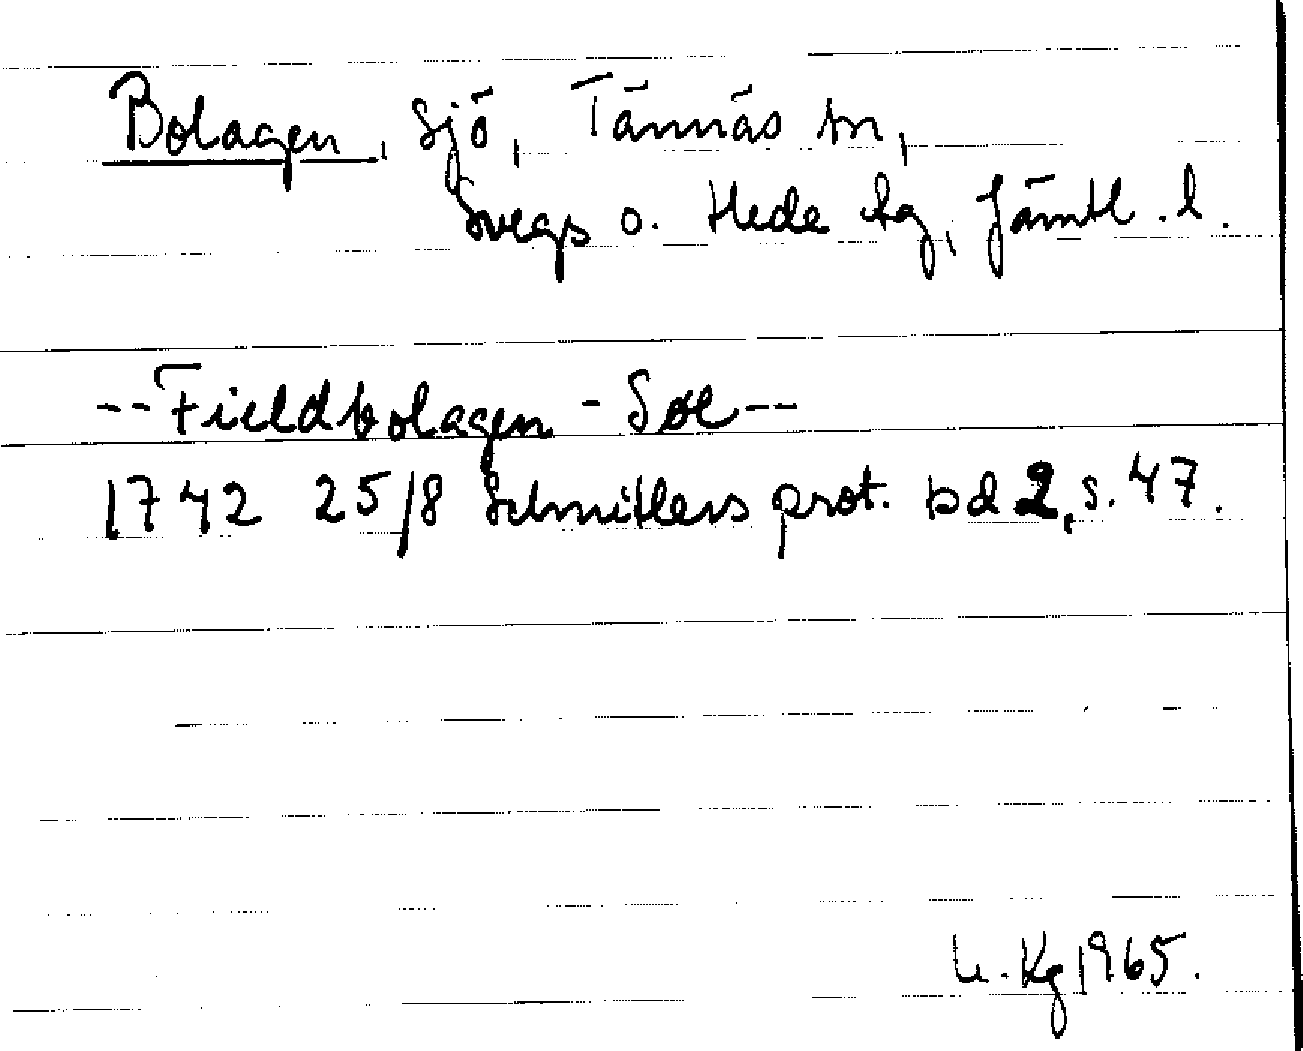 Bolagen, sjö, Tännäs sn,
Svegs o. Hede tg, Jämtl. l.
--Fieldbolagen - Søe--
1742 25/8 Schnitlers prot. bd 2, s. 47.
U. Kg 1965.